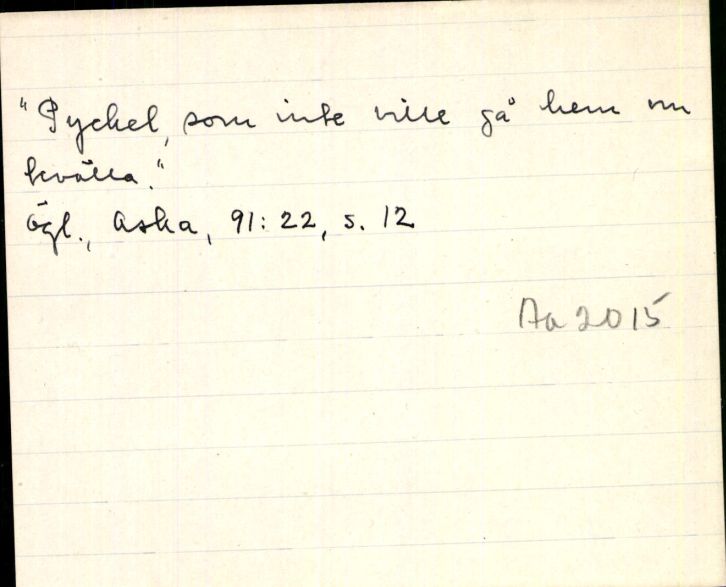 "Pyckel, som inte ville gå hem om
kvälla."
Ögl., Aska, 91:22, s. 12
Aa 2015